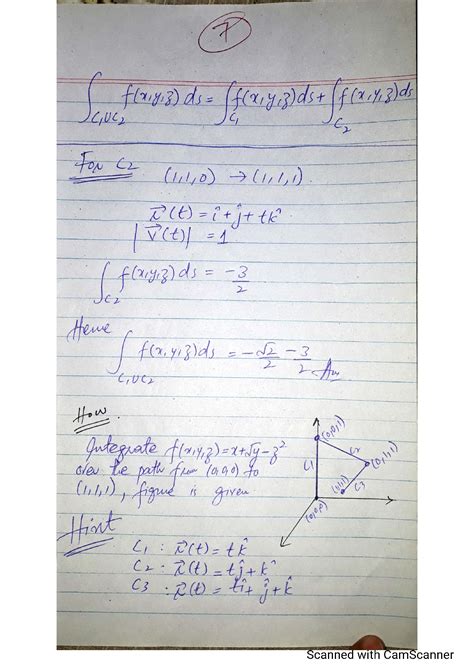 7
∫_{C₁UC₂} f(x,y,z) ds = ∫_{C₁} f(x,y,z) ds + ∫_{C₂} f(x,y,z) ds
For C₂ (1,1,0) → (1,1,1).
r⃗(t) = î + ĵ + tk̂
|V⃗(t)| = 1
∫_{C₂} f(x,y,z) ds = -3/2
Hence
∫_{C₁UC₂} f(x,y,z) ds = -√2/2 - 3/2 Ans
H.w.
Integrate f(x,y,z) = x+√y-z²
over the path from (0,0,0) to
(1,1,1), figure is given.
(0,0,1)
C₂
C₁
(0,1,1)
(1,1,1)
C₃
(0,0,0)
Hint
C₁ : r⃗(t) = tk̂
C₂ : r⃗(t) = tĵ + k̂
C₃ : r⃗(t) = tî + ĵ + k̂
Scanned with CamScanner